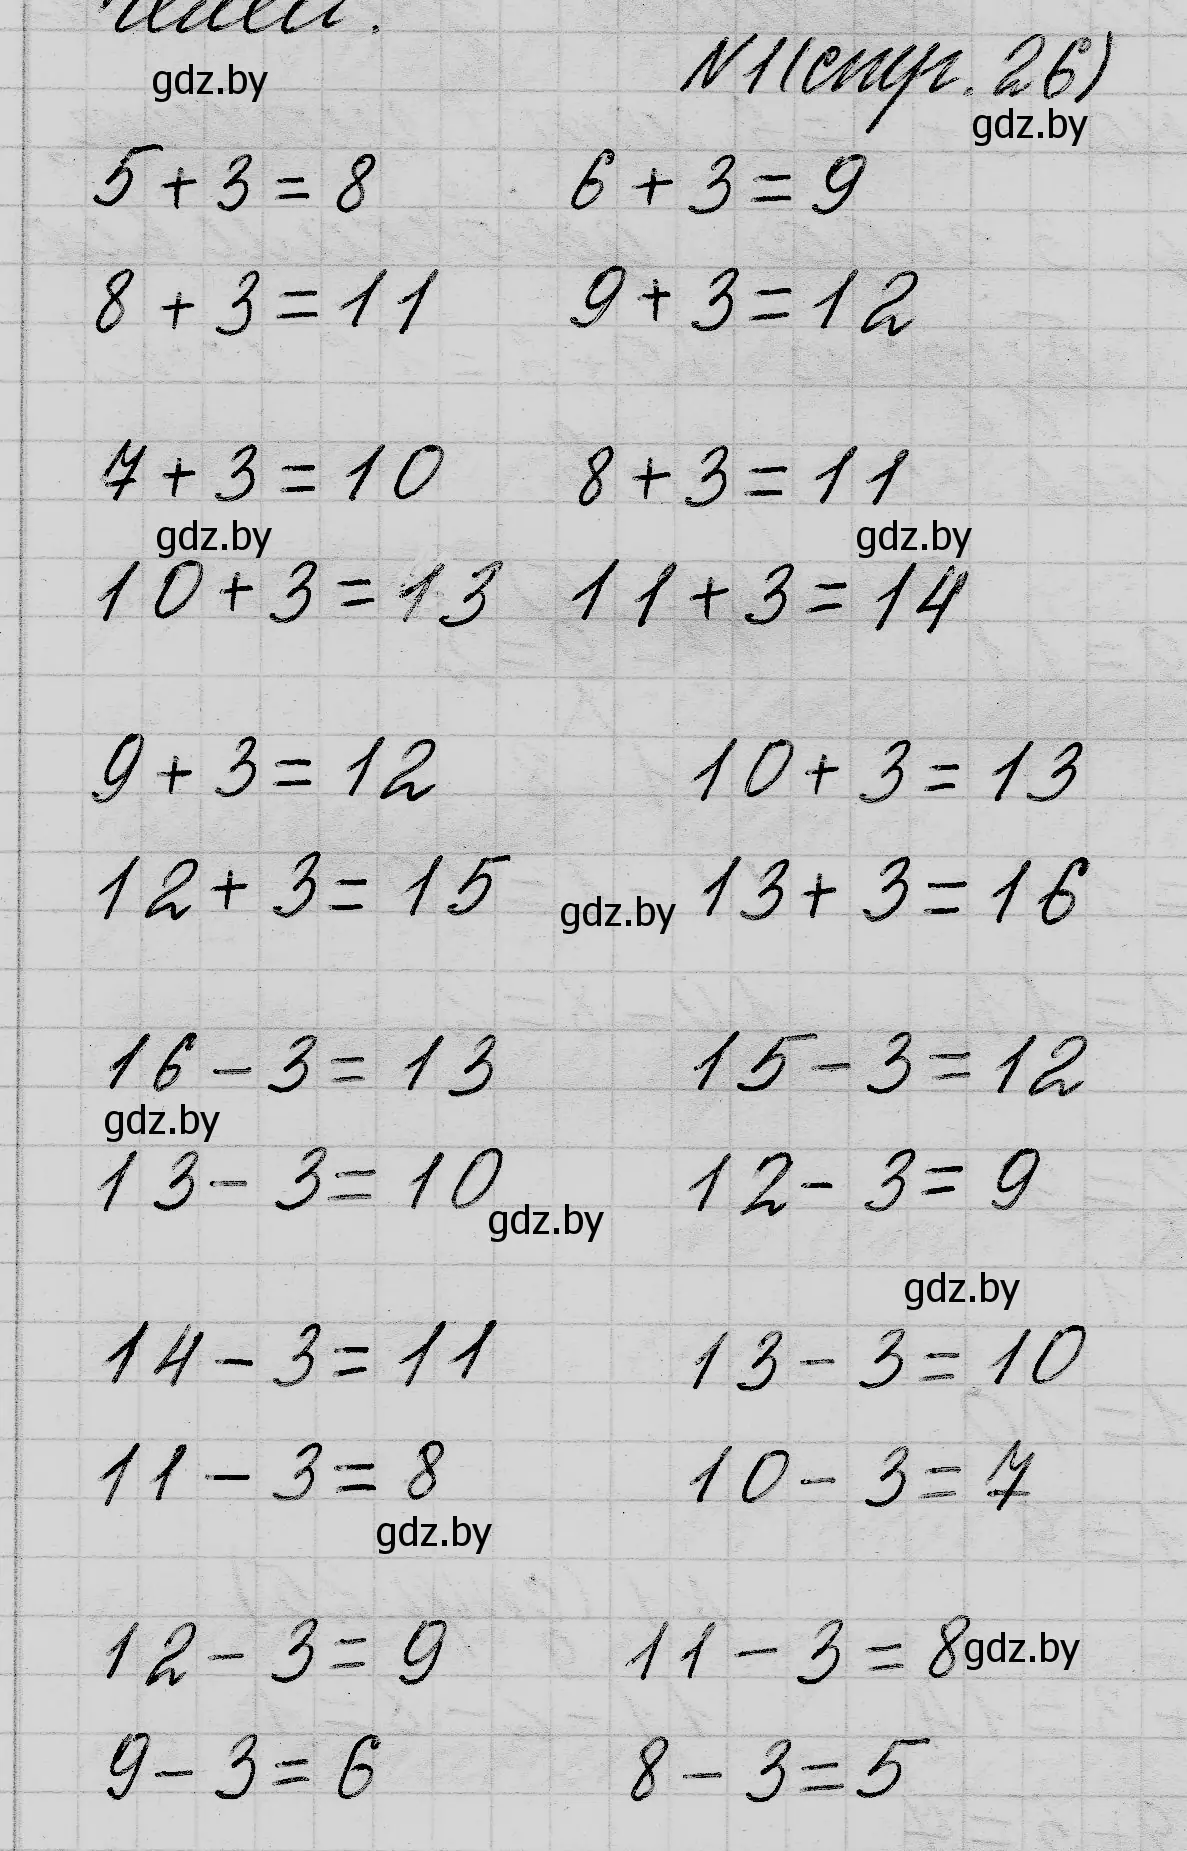 gdz.by
N1 (стр. 26)
gdz.by
5 + 3 = 8 6 + 3 = 9
8 + 3 = 11 9 + 3 = 12
7 + 3 = 10 8 + 3 = 11
gdz.by gdz.by
10 + 3 = 13 11 + 3 = 14
9 + 3 = 12 10 + 3 = 13
12 + 3 = 15 gdz.by 13 + 3 = 16
16 - 3 = 13 15 - 3 = 12
gdz.by
13 - 3 = 10 12 - 3 = 9
gdz.by
gdz.by
14 - 3 = 11 13 - 3 = 10
11 - 3 = 8 10 - 3 = 7
gdz.by
12 - 3 = 9 11 - 3 = 8 gdz.by
9 - 3 = 6 8 - 3 = 5